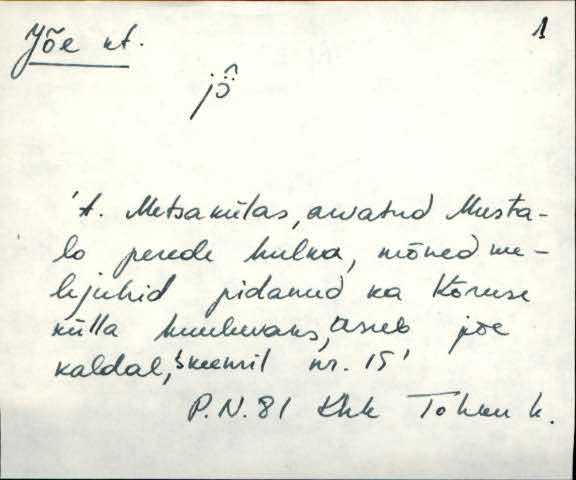 Jõe nt. 1
jȫ̂
't. Metsakülas, arvatud Musta-
la perede hulka, mõned me-
lejuhid pidanud ka Kõruse
külla kuuluvaks, asub jõe
kaldal, skeemil nr. 15'
P.N. 81 Khk Tohku k.